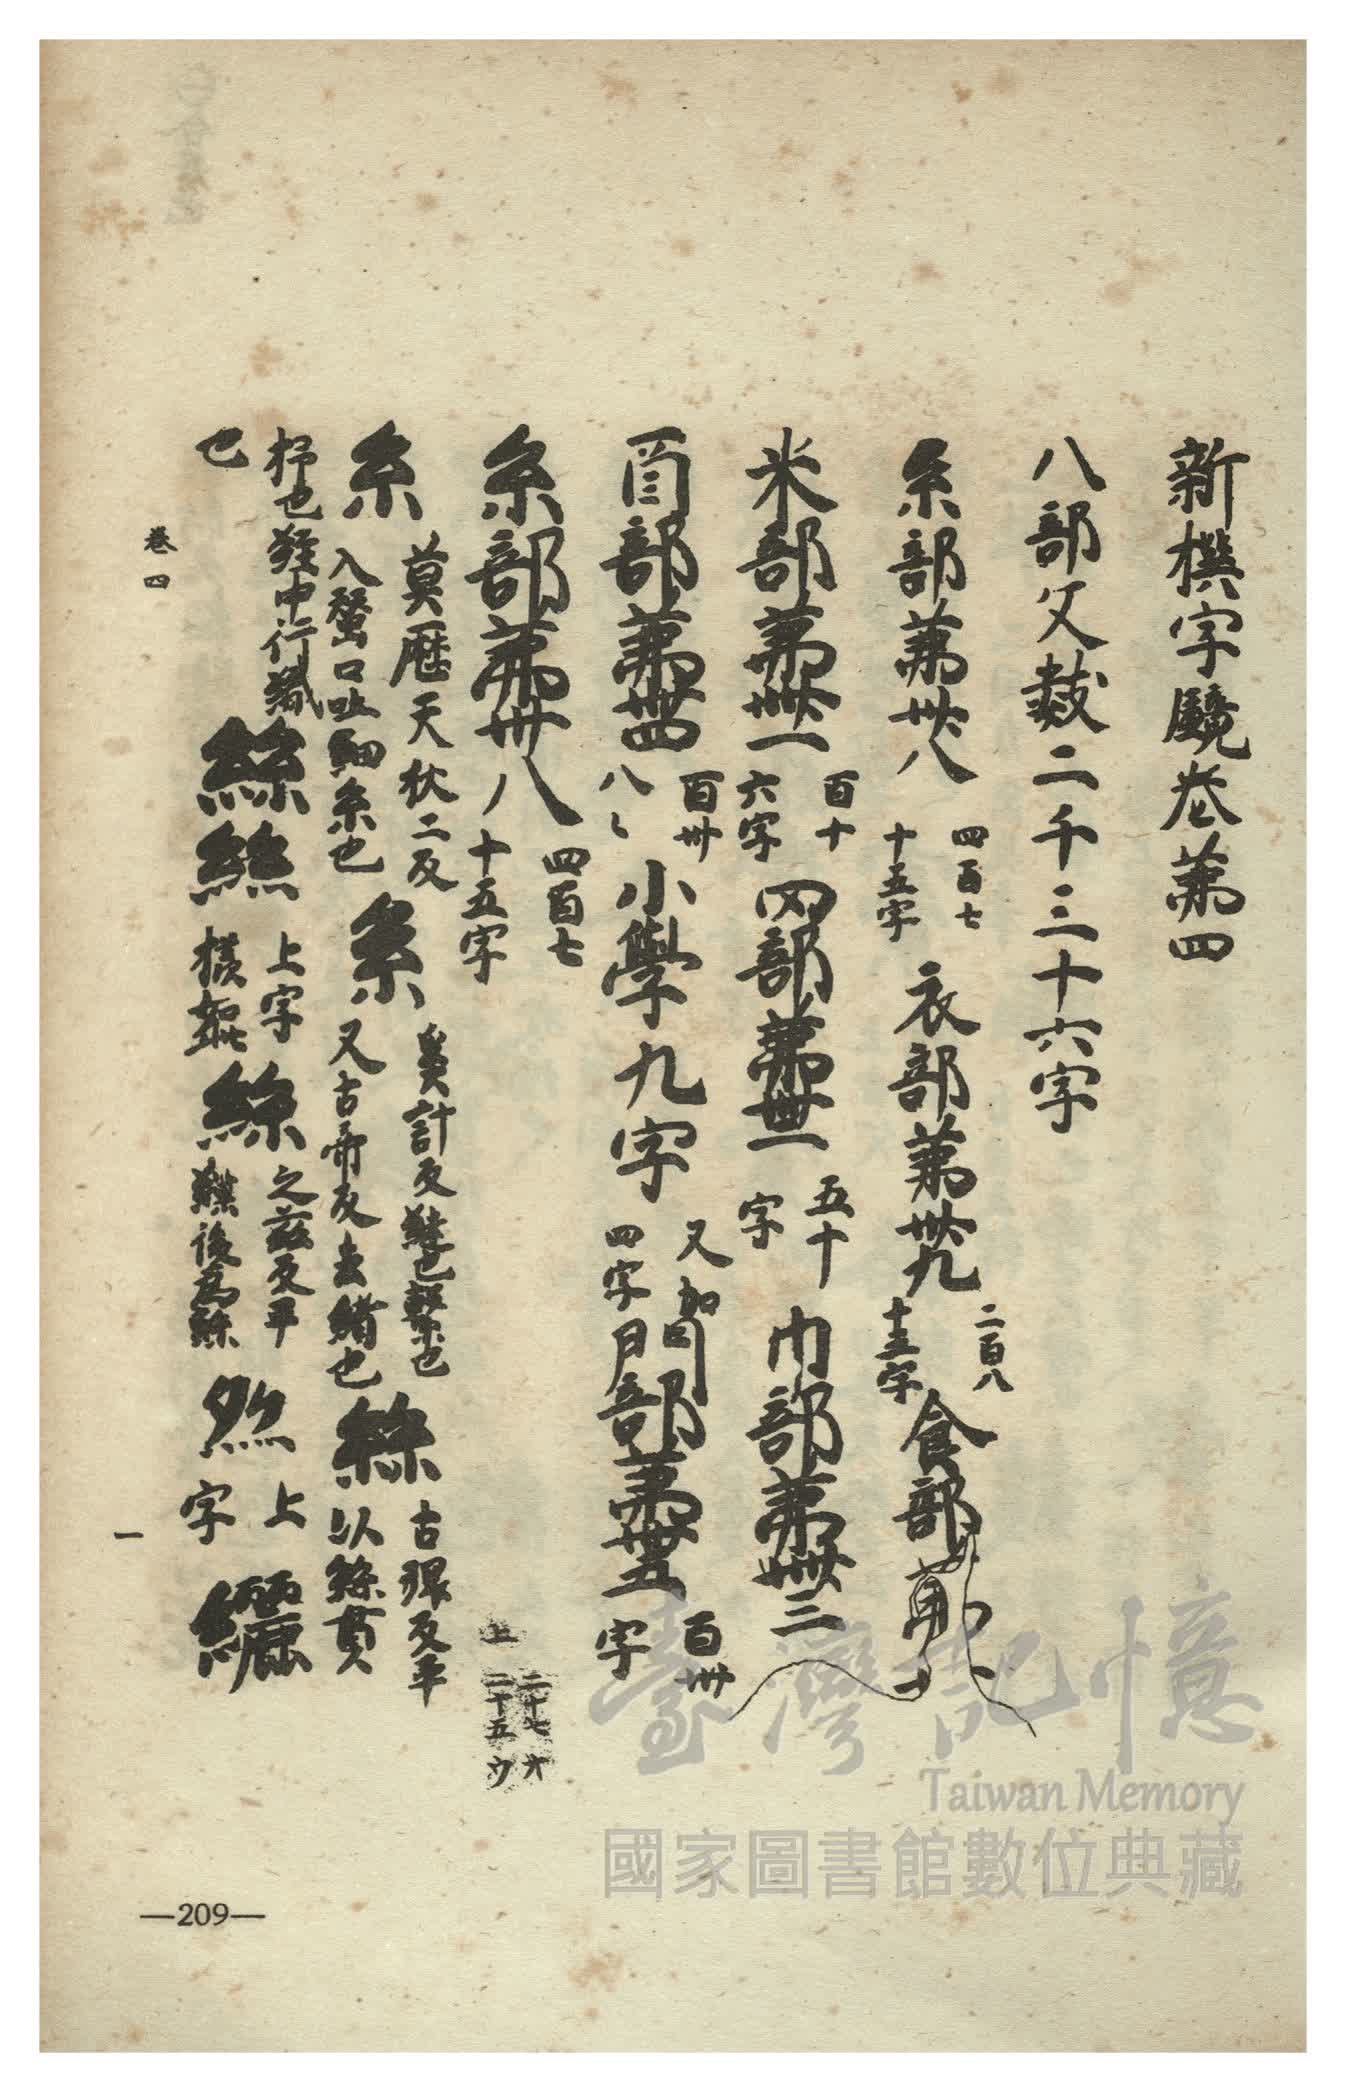 新撰字鏡卷第四
八部文數二千三十六字
糸部第卅八 四百七十五字 衣部第卅九 二百八十三字 食部第
米部第卌一 百十六字 网部第卌二 五十字 巾部第卌三
部第卌四 百卅八〻 小學九字 又加四字 門部第卌五 百卅字
糸部第卅八 四百七十五字
糸 莫歷天狄二反入蠶口吐細糸也 系 奚計反 也繫也又古帝反去緒也 古還反平以絲貫
杼也 中行織
絲 上字 絲 之茲反平 後為絲 上字 纚
卷四
一
—209—
臺灣記憶
Taiwan Memory
國家圖書館數位典藏